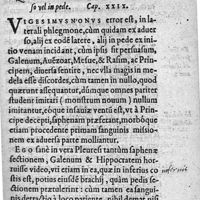 so vel in pede. Cap. XXIX.
VIGESIMVSNONVS error est, in la-
terali phlegmone, cùm quidam ex aduer-
so, alij ex eodē latere, alij in pede ex ini-
tio venam incidant, cùm ipsis sit persuasum,
Galenum, Auēzoar, Mesue, & Rasim, ac Prin-
cipem, diuersa sentire, nec vlla magis in mo-
dela esse discordes, cùm tamen in nulla, quod
quærunt assequantur, dúmque omnes pariter
student imitari (monstrum nouum) nullum
imitantur, atque insaniæ euentus est, vt à Prin-
cipe decepti, saphenam præsecent, morbóque
etiam procedente primam sanguinis missio-
nem ex aduersa parte molliantur.
EGO sanè in vera Pleuresi tantùm saphenæ
sectionem, Galenum & Hippocratem hor-
ruisse video, vti etiam in ea, quæ in inferius co
sis est, potius eiusdē brachij, quàm pedis se-
ctionem prætolerint: cùm tamen ea sangui-